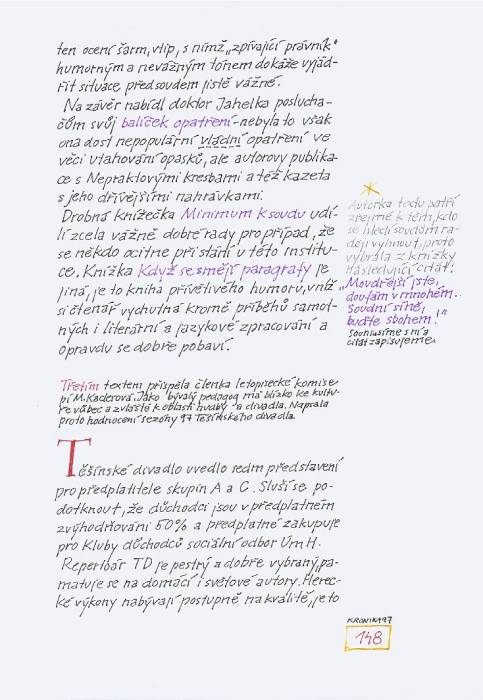 ten ocení šarm, vtip, s nímž „zpívající právník"
humorným a nevážným tónem dokáže vyjád-
řit situace před soudem jistě vážné.
Na závěr nabídl doktor Jahelka poslucha-
čům svůj balíček opatření - nebyla to však
ona dost nepopulární vládní opatření ve
věci utahování opasků, ale autorovy publika-
ce s Nepraktovými kresbami a též kazeta
s jeho dřívějšími nahrávkami.
Drobná knížečka Minimum k soudu udí-
lí zcela vážně dobré rady pro případ, že
se někdo ocitne při stání u této institu-
ce. Knížka Když se smějí paragrafy je
jiná, je to kniha přívětivého humoru, v níž
si čtenář vychutná kromě příběhů samot-
ných i literární a jazykové zpracování a
opravdu se dobře pobaví.
Autorka textu patří
zřejmě k těm, kdo
se hledí soudům ra-
ději vyhnout, proto
vybrala z knížky
následující citát:
„Moudřejší jste,
doufám v mnohém.
Soudní síně,
buďte sbohem!"
Souhlasíme s ní a
citát zapisujeme.
Třetím textem přispěla členka letopisecké komise
pí M. Kaderová. Jako bývalý pedagog má blízko ke kultu-
ře vůbec a zvláště k oblasti hudby a divadla. Napsala
proto hodnocení sezóny 97 Těšínského divadla.
Těšínské divadlo uvedlo sedm představení
pro předplatitele skupin A a C. Sluší se po-
dotknout, že důchodci jsou v předplatném
zvýhodňováni 50% a předplatné zakupuje
pro Kluby důchodců sociální odbor ÚmH.
Repertoár TD je pestrý a dobře vybraný, pa-
matuje se na domácí i světové autory. Herec-
ké výkony nabývají postupně na kvalitě, je to
KRONIKA 97
148